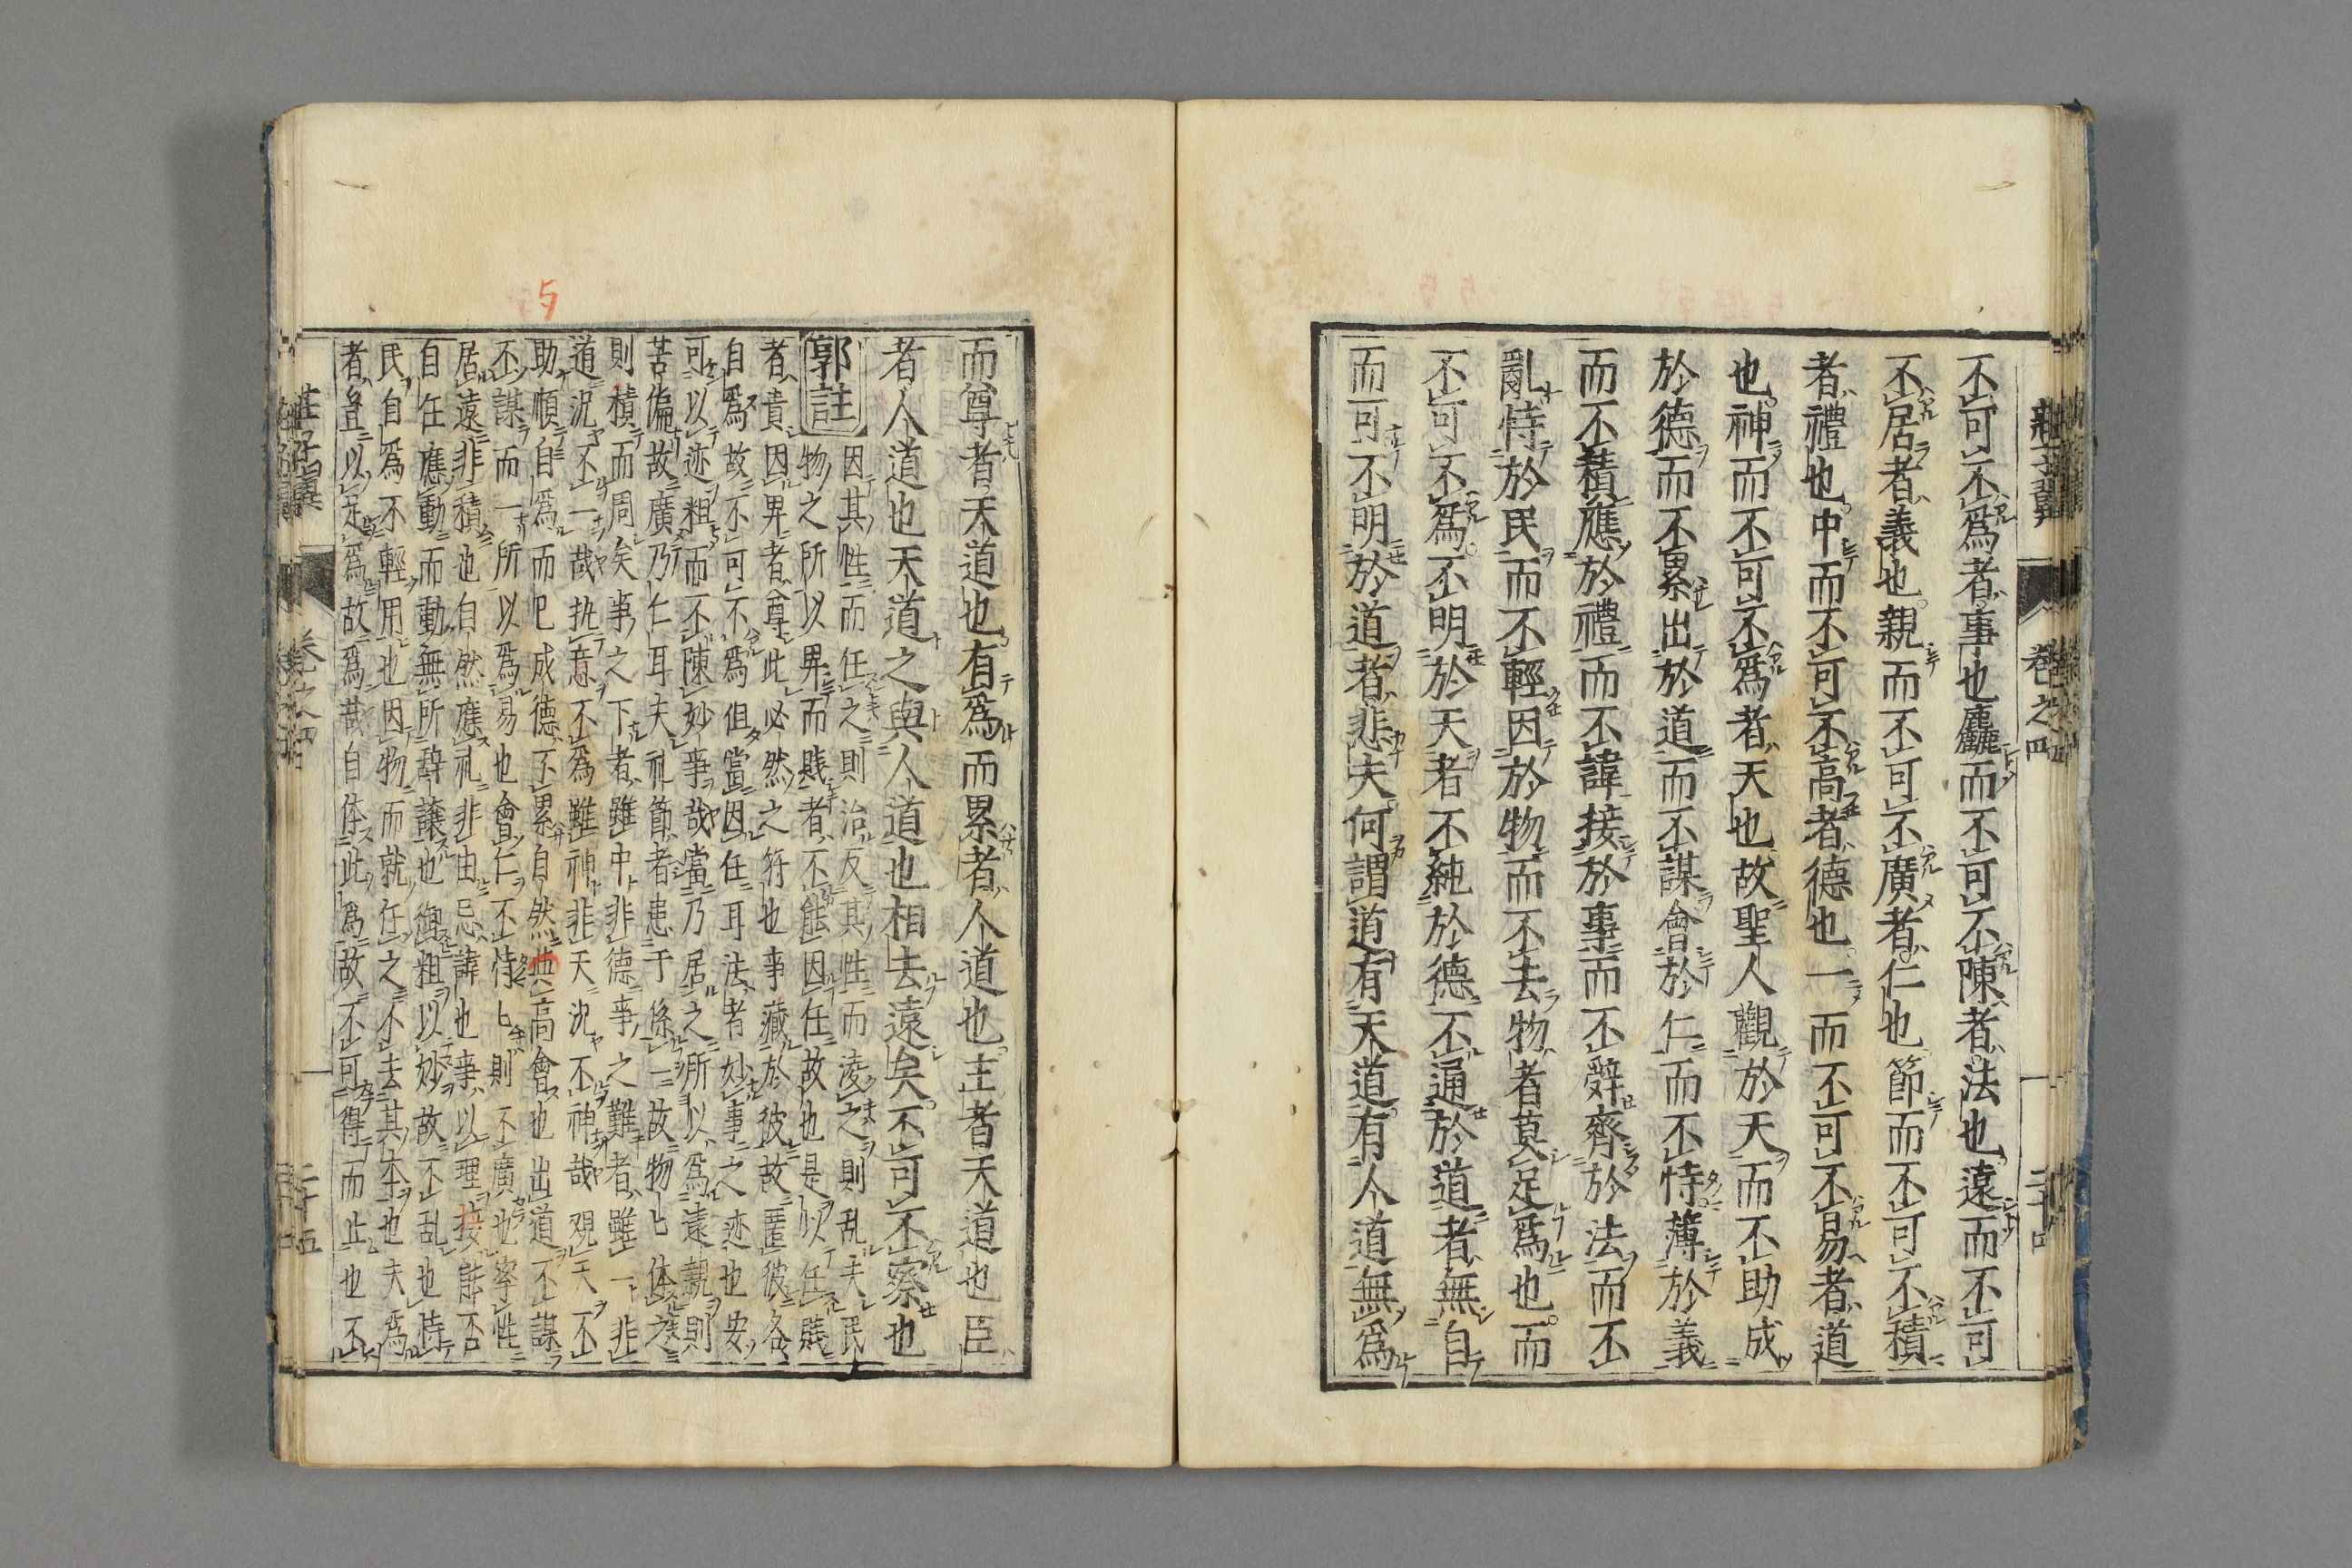 莊子翼 卷之四 二十四
不可不爲者事也麤而不可不陳者法也遠而不可
不居者義也親而不可不廣者仁也節而不可不積
者禮也中而不可不高者德也一而不可不易者道
也神而不可不爲者天也故聖人觀於天而不助成
於德而不累出於道而不謀會於仁而不恃薄於義
而不積應於禮而不諱接於事而不辭齊於法而不
亂恃於民而不輕因於物而不去物者莫足爲也而
不可不爲不明於天者不純於德不通於道者無自
而可不明於道者悲夫何謂道有天道有人道無爲
而尊者天道也有爲而累者人道也主者天道也臣
者人道也天道之與人道也相去遠矣不可不察也
郭註
因其性而任之則治反其性而凌之則乱夫民
物之所以畀而賎者不能因任故也是以任賎
者貴因畀者尊此必然之符也事藏於彼故匿彼各
自爲故不可不爲但當因任耳法者妙事之迹也安
可以迹粗而不陳妙事哉當乃居之所以爲遠親則
苦偏故廣乃仁耳夫礼節者患于係一故物〻体之
則積而周矣事之下者雖中非德事之難者雖一非
道况不一哉执意不爲雖神非天况不神哉观天不
助順自爲而已成德不累自然與高會也出道不謀
不謀而一所以爲易也會仁不恃〻則不廣也率性
居遠非積也自然應礼非由忌諱也事以理接詎否
自任應動而動無所辞讓也御粗以妙故不乱也恃
民自爲不輕用也因物而就任之不去其本也夫爲
者豈以足爲故爲哉自体此爲故不可得而止也不
莊子翼 卷之四 二十五